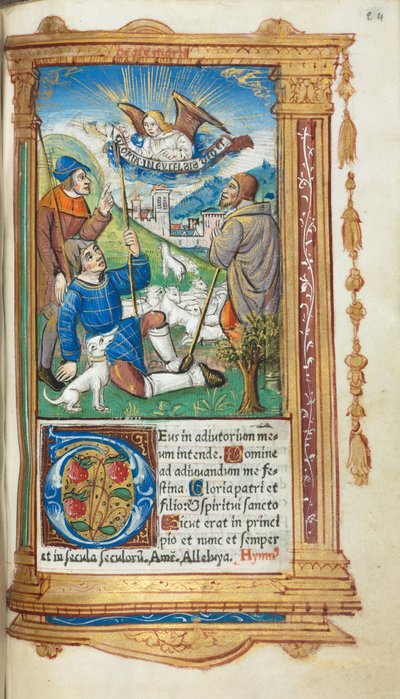 GLORIA IN EXCELSIS DEO ET
Deus in adiutorium me-
um intende. Domine
ad adiuuandum me fe-
stina Gloria patri et
filio: & spiritui sancto
Sicut erat in princi
pio et nunc et semper
et in secula seculorū. Amē. Alleluya. Hymn⁹